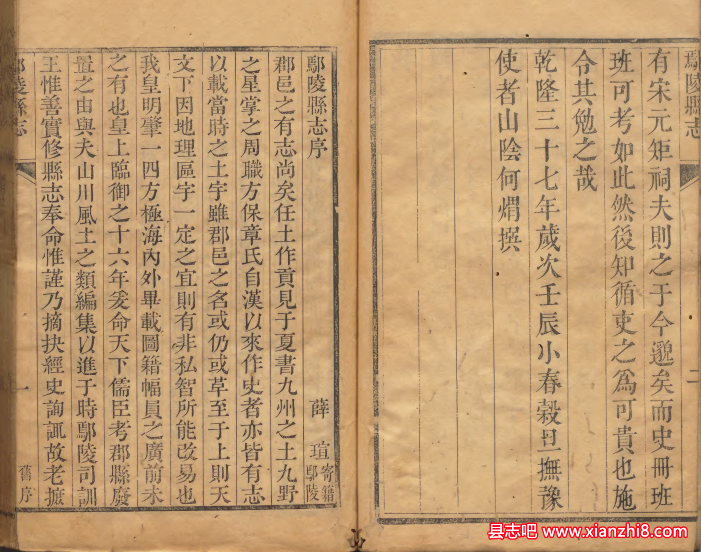 鄢陵縣志
二
有宋元矩祠夫則之于今邈矣而史冊班
班可考如此然後知循吏之爲可貴也施
令其勉之哉
乾隆三十七年歲次壬辰小春穀旦撫豫
使者山陰何煟撰
鄢陵縣志序
薛瑄寄籍鄢陵
郡邑之有志尚矣任土作貢見于夏書九州之土九野
之星掌之周職方保章氏自漢以來作史者亦皆有志
以載當時之土宇雖郡邑之名或仍或革至于上則天
文下因地理區宇一定之宜則有非私智所能改易也
我皇明肇一四方極海內外畢載圖籍幅員之廣前未
之有也皇上臨御之十六年爰命天下儒臣考郡縣廢
置之由與夫山川風土之類編集以進于時鄢陵司訓
王惟善實修縣志奉命惟謹乃摘抉經史詢諏故老摭
鄢陵縣志
一
舊序
县志吧 www.xianzhi8.com